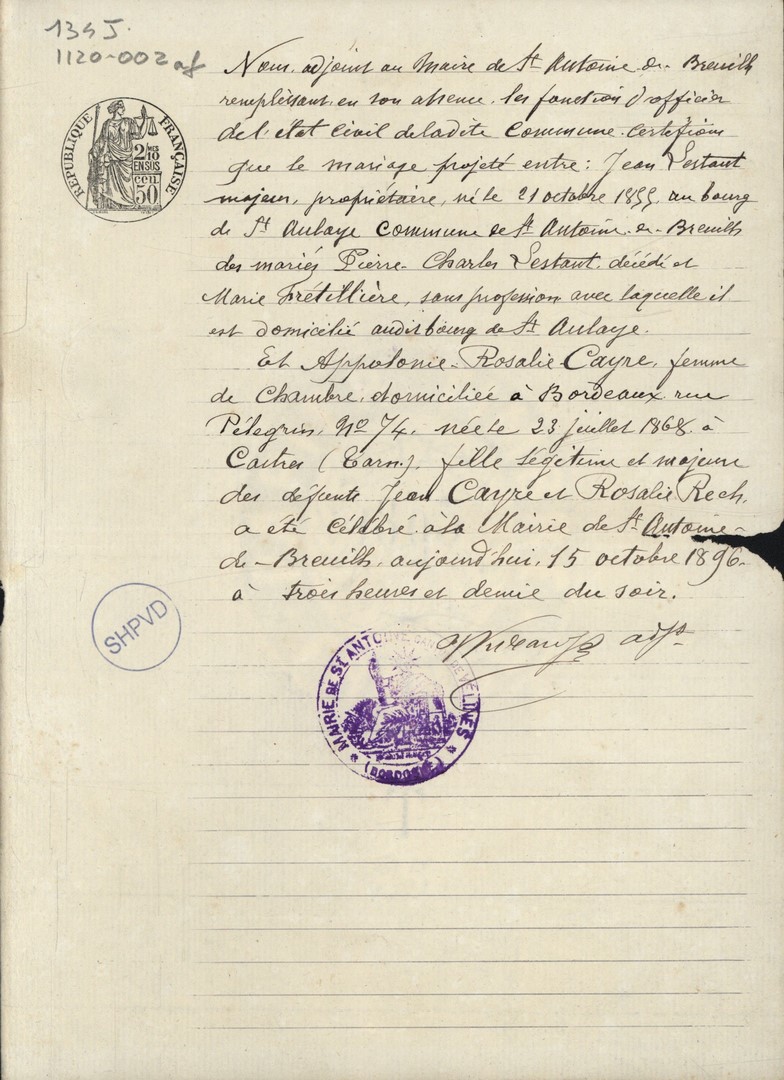 134J.
1120-002 af
RÉPUBLIQUE FRANÇAISE
2/10 MES
EN SUS
CEN.
50
Nous, adjoint au Maire de St Antoine-de-Breuilh
remplissant, en son absence, les fonctions d'officier
de l'état civil de ladite Commune certifions
que le mariage projeté entre: Jean Lestant
majeur, propriétaire, né le 21 octobre 1855, au bourg
de St Aulaye Commune de St Antoine-de-Breuilh
des mariés Pierre-Charles Lestant, décédé et
Marie Frétillière, sans profession avec laquelle il
est domicilié audit bourg de St Aulaye.
Et Appolonie-Rosalie Cayre, femme
de Chambre, domiciliée à Bordeaux rue
Pélegrin, No 74, née le 23 juillet 1868 à
Castres (Tarn), fille légitime et majeure
des défunts Jean Cayre et Rosalie Rech,
a été célébré à la Mairie de St Antoine-
de-Breuilh, aujourd'hui, 15 octobre 1896
à trois heures et demie du soir.
adjt
SHPVD
MAIRIE DE ST ANTOINE CANTON DE VÉLINES
* (DORDOGNE) *